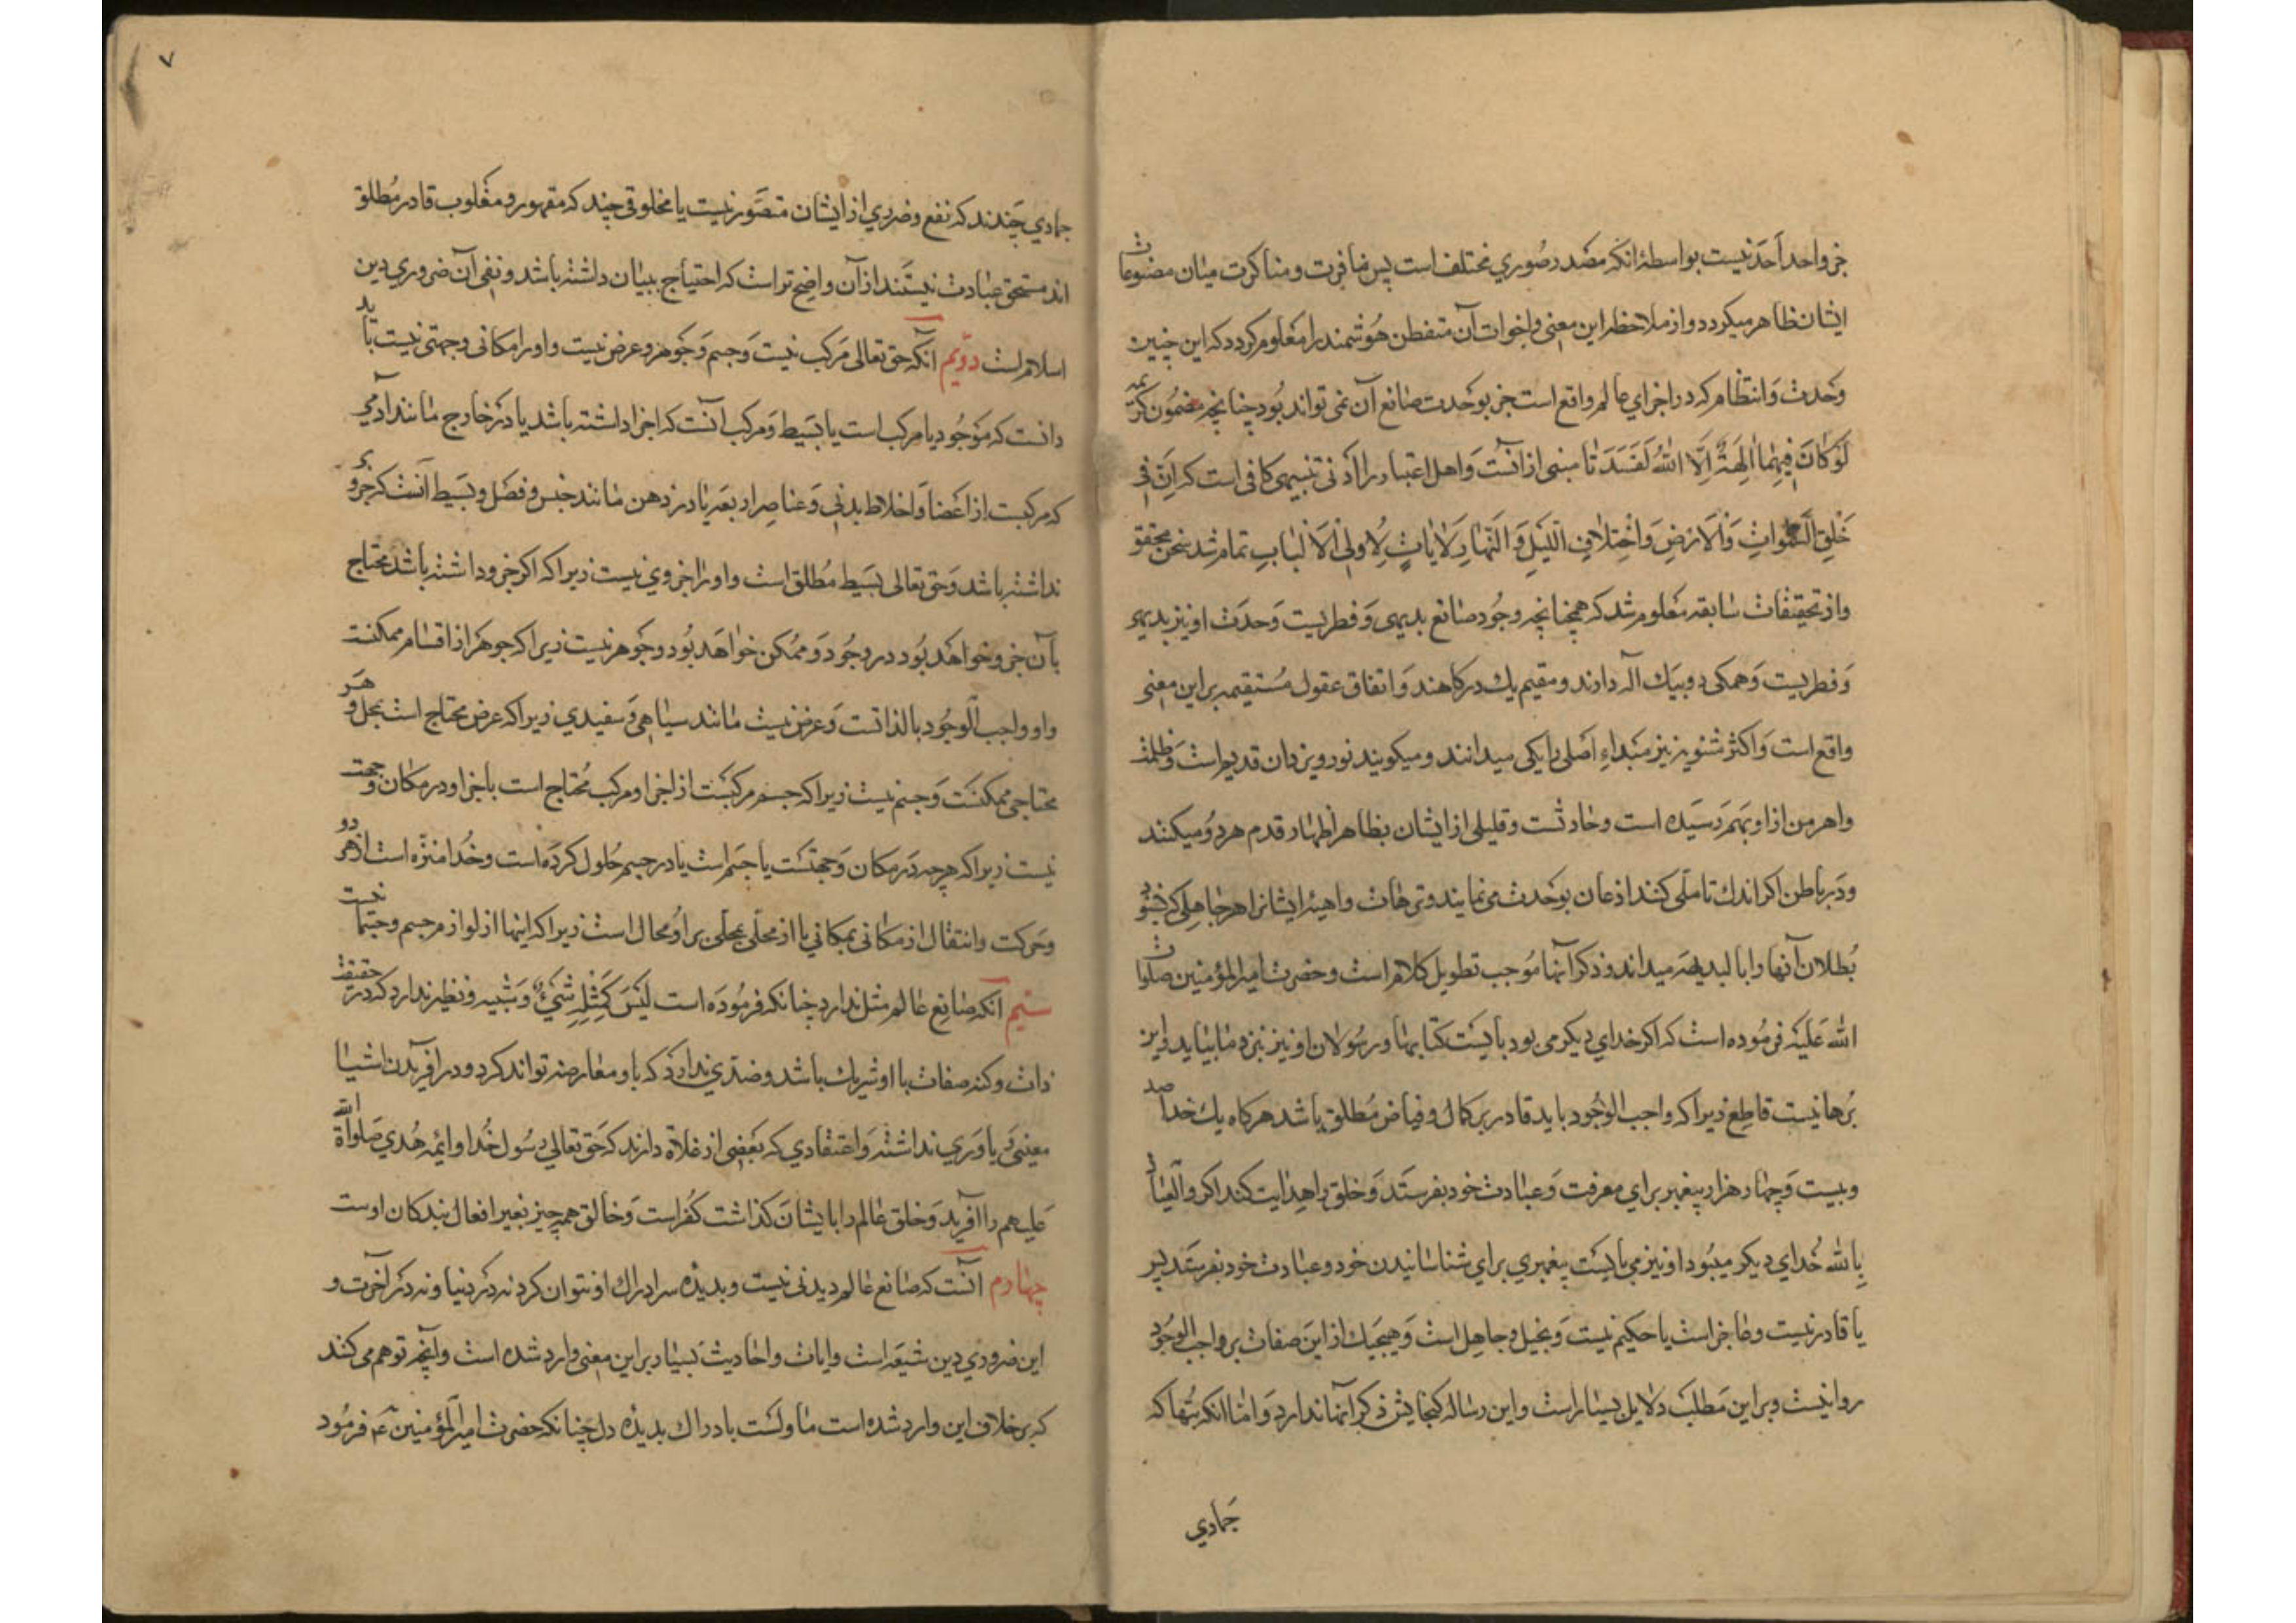 جز واحد احد نیست بواسطهٔ انکه مصدر صوری مختلف است پس منافرت و مناکرت میان مصنوعات
ایشان ظاهر میکردد و از ملاحظه این معنی و اخوات آن متفطن هوشمند را معلوم کردد که این چنین
وحدت و انتظام که در اجزای عالم واقع است جز بوحدت صانع آن نمی تواند بود چنانچه مضمون کریمه
لَوْ کٰانَ فِیهِمٰا اٰلِهَةٌ اِلَّا اللّٰهُ لَفَسَدَتٰا مبنی از انست و اهل اعتبار را ادنی تنبیهی کافی است که اِنَّ فِی
خَلْقِ السَّمٰوٰاتِ وَالْاَرْضِ وَاخْتِلٰافِ اللَّیْلِ وَالنَّهٰارِ لَاٰیٰاتٍ لِاُولِی الْاَلْبٰابِ تمام شد سخن محقق
و از تحقیقات سابقه معلوم شد که همچنانچه وجود صانع بدیهی و فطریست وحدت او نیز بدیهی
و فطریست و همکی رو بیک اله دارند و مقیم یك درکاهند و اتفاق عقول مستقیمه بر این معنی
واقع است و اکثر ثنویه نیز مبداء اصلی را یکی میدانند و میکویند نور و یزدان قدیم است و ظلمت
و اهرمن از او بهم رسیده است و حادثست و قلیلی از ایشان بظاهر اظهار قدم هر دو میکنند
و در باطن اکر اندك تاملی کنند اذعان بوحدت می نمایند و ترهات واهیهٔ ایشانرا هر جاهلی که بشنود
بطلان آنها را بالبدیهه میداند و ذکر آنها موجب تطویل کلام است و حضرت امیر المؤمنین صلوات
الله علیه فرموده است که اکر خدای دیکر می بود بایست کتابها و رسولان او نیز بنزد ما بیاید و این
برهانیست قاطع زیرا که واجب الوجود باید قادر بر کمال و فیاض مطلق باشد هرکاه یك خدا صد
و بیست و چهار هزار پیغمبر برای معرفت و عبادت خود بفرستد و خلق را هدایت کند اکر والعیاذ
بالله خدای دیکر میبود او نیز می بایست پیغمبری برای شناسانیدن خود و عبادت خود بفرستد پس
یا قادر نیست و عاجز است یا حکیم نیست و بخیل و جاهل است و هیچیك از این صفات بر واجب الوجود
روا نیست و بر این مطلب دلایل بسیار است و این رساله کنجایش ذکر آنها ندارد و اما انکه بتها که
جمادی
۷
جمادی چندند که نفع و ضرری از ایشان متصور نیست یا مخلوقی چند که مقهور و مغلوب قادر مطلق
اند مستحق عبادت نیستند از آن واضح تر است که احتیاج ببیان داشته باشد و نفی آن ضروری دین
اسلام است دویم آنکه حق تعالی مرکب نیست و جسم و جوهر و عرض نیست و او را مکانی و جهتی نیست باید
دانست که موجود یا مرکب است یا بسیط و مرکب آنست که اجزا داشته باشد یا در خارج مانند آدمی
که مرکبست از اعضا و اخلاط بدنی و عناصر اربعه یا در ذهن مانند جنس و فصل و بسیط آنست که جزوی
نداشته باشد و حق تعالی بسیط مطلق است و او را جزوی نیست زیرا که اکر جزو داشته باشد محتاج
بآن جزو خواهد بود در وجود و ممکن خواهد بود و جوهر نیست زیرا که جوهر از اقسام ممکنست
و او واجب الوجود بالذاتست و عرض نیست مانند سیاهی و سفیدی زیرا که عرض محتاج است بمحل و هر
محتاجی ممکنست و جسم نیست زیرا که جسم مرکبست از اجزا و مرکب محتاج است باجزا و در مکان و جهت
نیست زیرا که هرچه در مکان و جهتست یا جسم است یا در جسم حلول کرده است و خدا منزه است از هر دو
و حرکت و انتقال از مکانی بمکانی یا از محلی بمحلی بر او محال است زیرا که اینها از لوازم جسم و جسمانیست
سیم آنکه صانع عالم مثل ندارد چنانکه فرموده است لَیْسَ کَمِثْلِهِ شَیْءٌ و شبیه و نظیر ندارد که در حقیقت
ذات و کنه صفات با او شریك باشد و ضدی ندارد که باو معارضه تواند کرد و در آفریدن اشیا
معینی و یاوری نداشته و اعتقادی که بعضی از غلاة دارند که حق تعالی رسول خدا و ائمه هدی صلواة الله
علیهم را آفرید و خلق عالم را بایشان کذاشت کفر است و خالق همه چیز بغیر افعال بندکان اوست
چهارم آنست که صانع عالم دیدنی نیست و بدیدهٔ سر ادراك او نتوان کرد نه در دنیا و نه در آخرت و
این ضروری دین شیعه است و ایات و احادیث بسیار بر این معنی وارد شده است و آنچه توهم می کند
که بر خلاف این وارد شده است ماولست بادراك بدیدهٔ دل چنانکه حضرت امیر المؤمنین ع فرمود